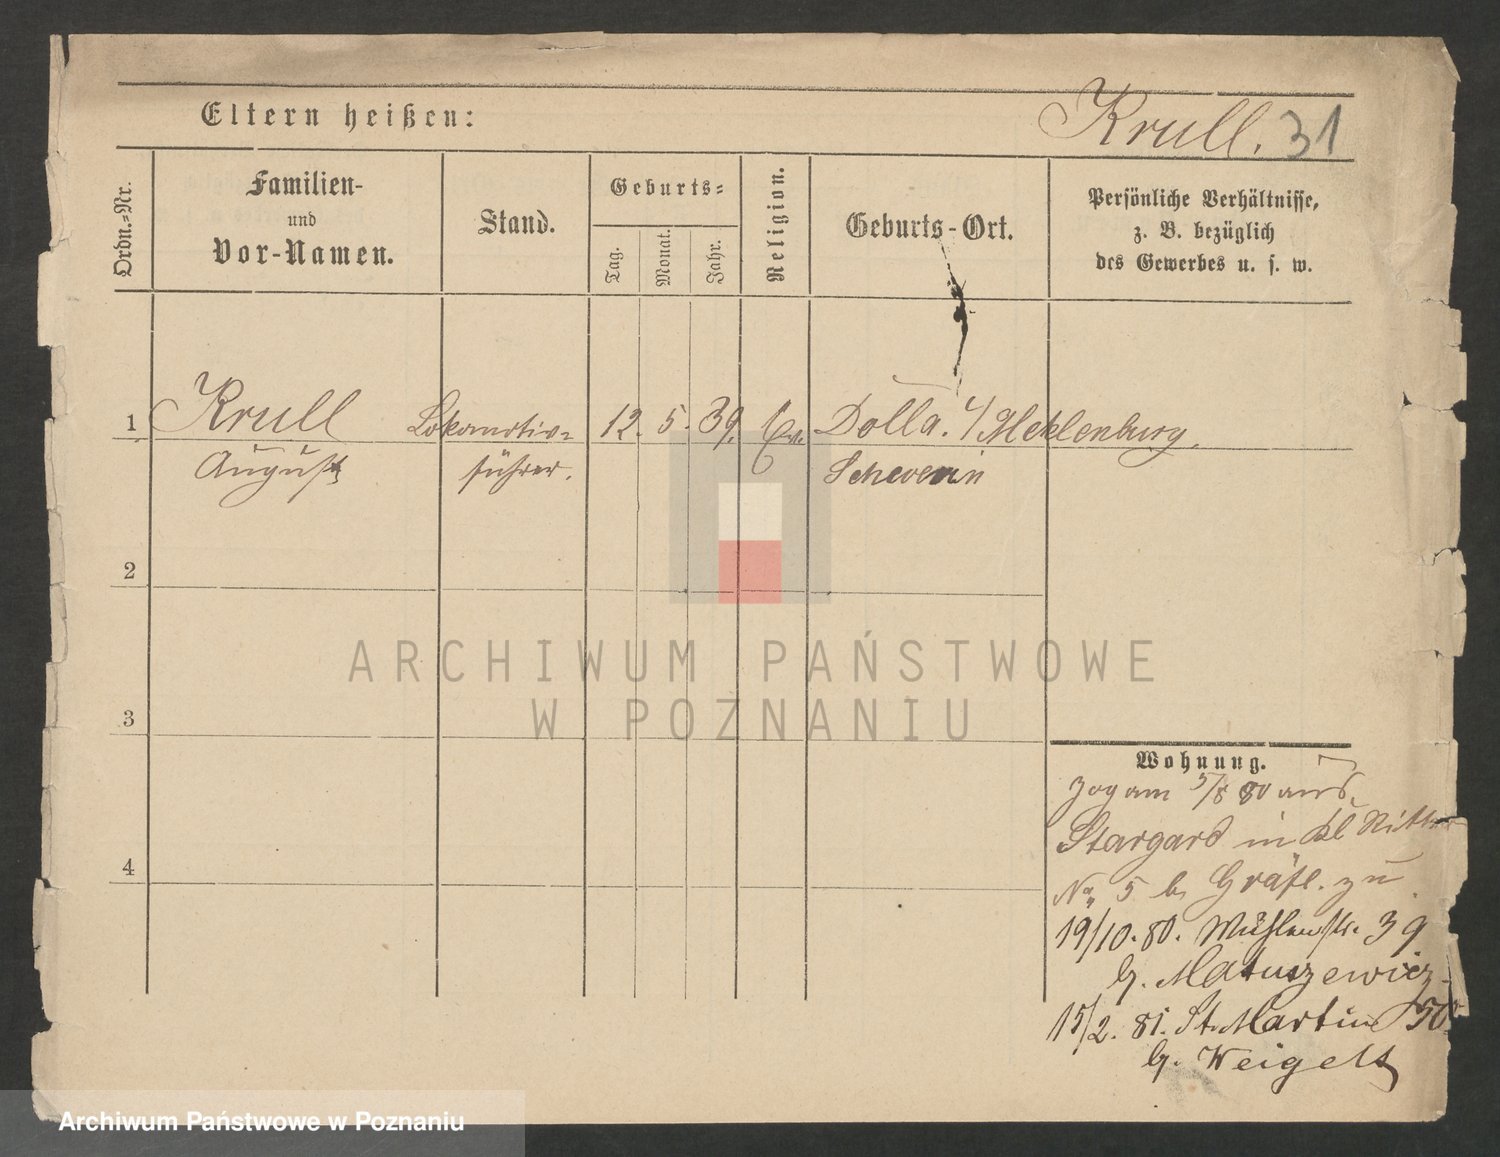 Eltern heißen:
Krull. 31
Ordn.-Nr.
Familien-
und
Vor-Namen.
Stand.
Geburts-
Tag.
Monat.
Jahr.
Religion.
Geburts-Ort.
Persönliche Verhältnisse,
z. B. bezüglich
des Gewerbes u. s. w.
1 Krull Lokomotiv- 12. 5. 39. Ev. Dolla. i/Meklenburg.
August führer. Schwerin
2
3
4
ARCHIWUM PAŃSTWOWE
W POZNANIU
Wohnung.
zog am 5/8 80 aus
Stargard in Kl Ritter
No 5 b. Gräfl. zu
19/10. 80. Mühlenstr. 39
b. Matuszewicz
15/2. 81. St. Martin 50
b. Weigelt
Archiwum Państwowe w Poznaniu